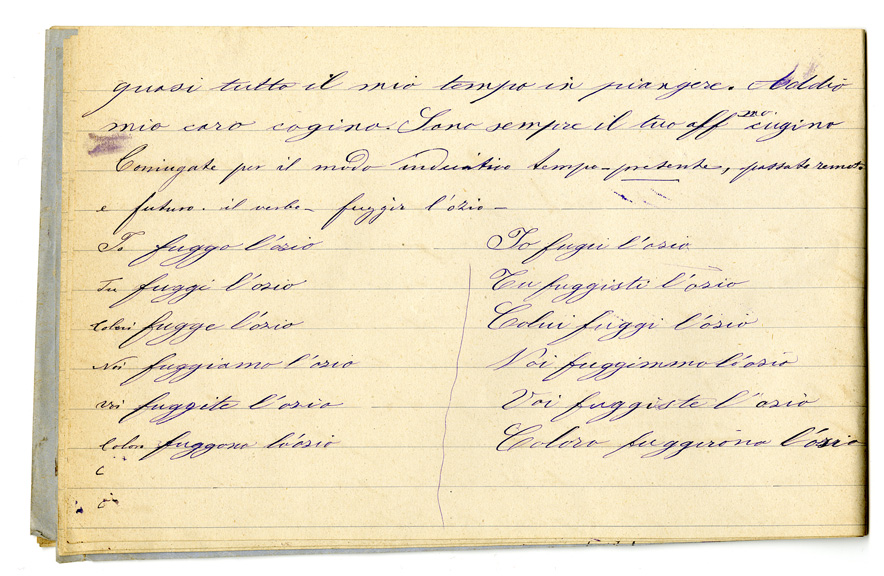 quasi tutto il mio tempo in piangere. Addio
mio caro cogino. Sono sempre il tuo aff mo. cugino
Coniugate per il modo indicativo tempo presente, passato remoto
e futuro. il verbo fuggir l'ozio
Io fuggo l'ozio
Tu fuggi l'ozio
Colui fugge l'ozio
Noi fuggiamo l'ozio
Voi fuggite l'ozio
Coloro fuggono l'ozio
Io fugii l'ozio
Tu fuggisti l'ozio
Colui fuggi l'ozio
Noi fuggimmo l'ozio
Voi fuggiste l'ozio
Coloro fuggirono l'ozio